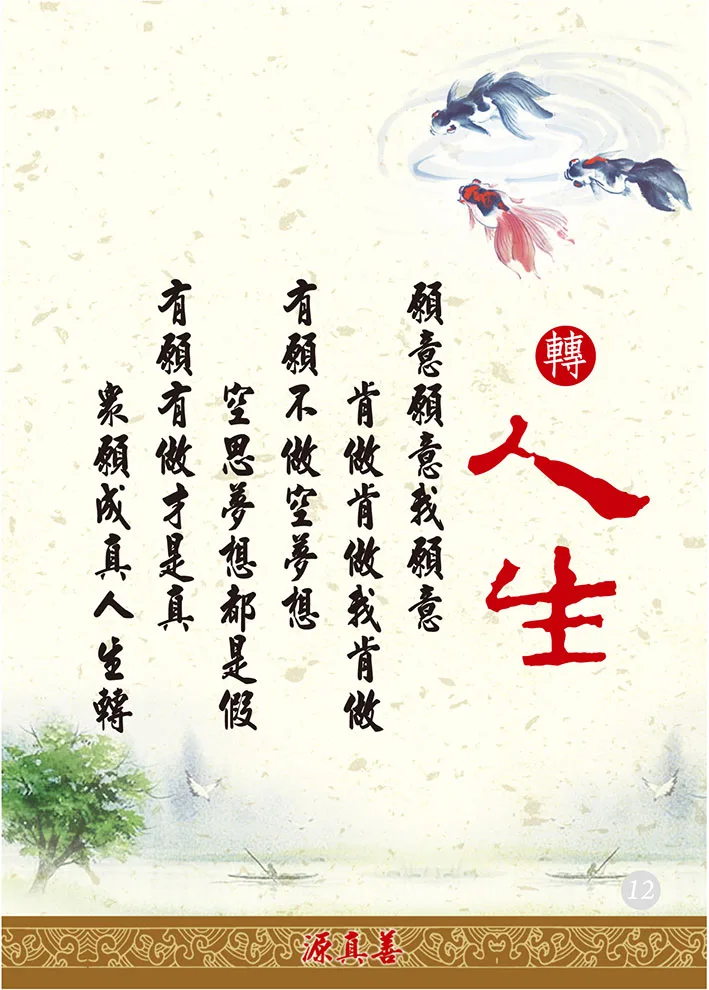 轉
人生
願意願意我願意
肯做肯做我肯做
有願不做空夢想
空思夢想都是假
有願有做才是真
眾願成真人生轉
12
源真善